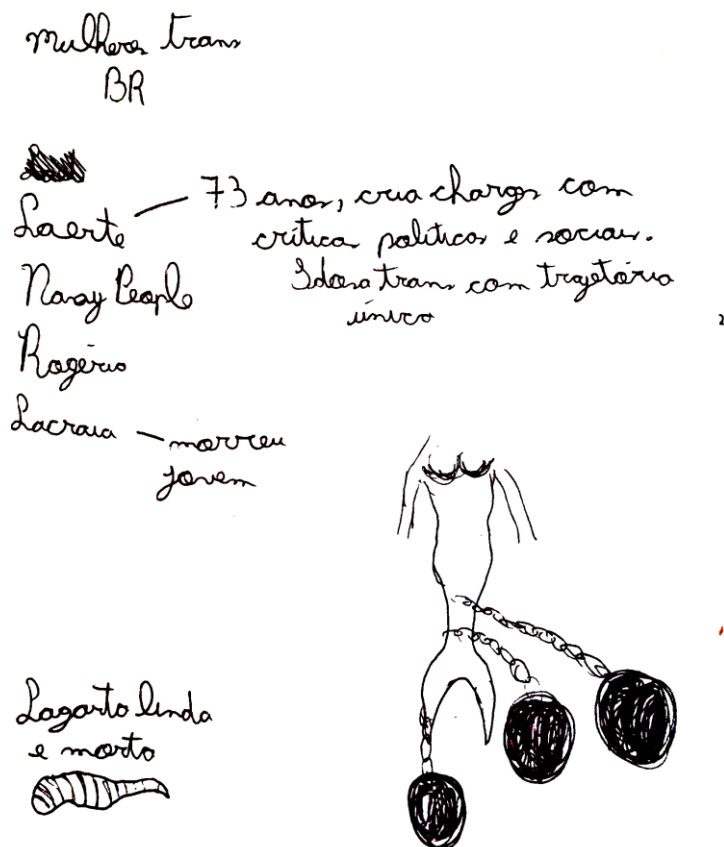 Mulheres trans
BR
Laerte — 73 anos, cria charges com
críticas políticas e sociais.
Idosa trans com trajetória
única
Nany People
Rogério
Lacraia — morreu
jovem
Lagarto linda
e morta